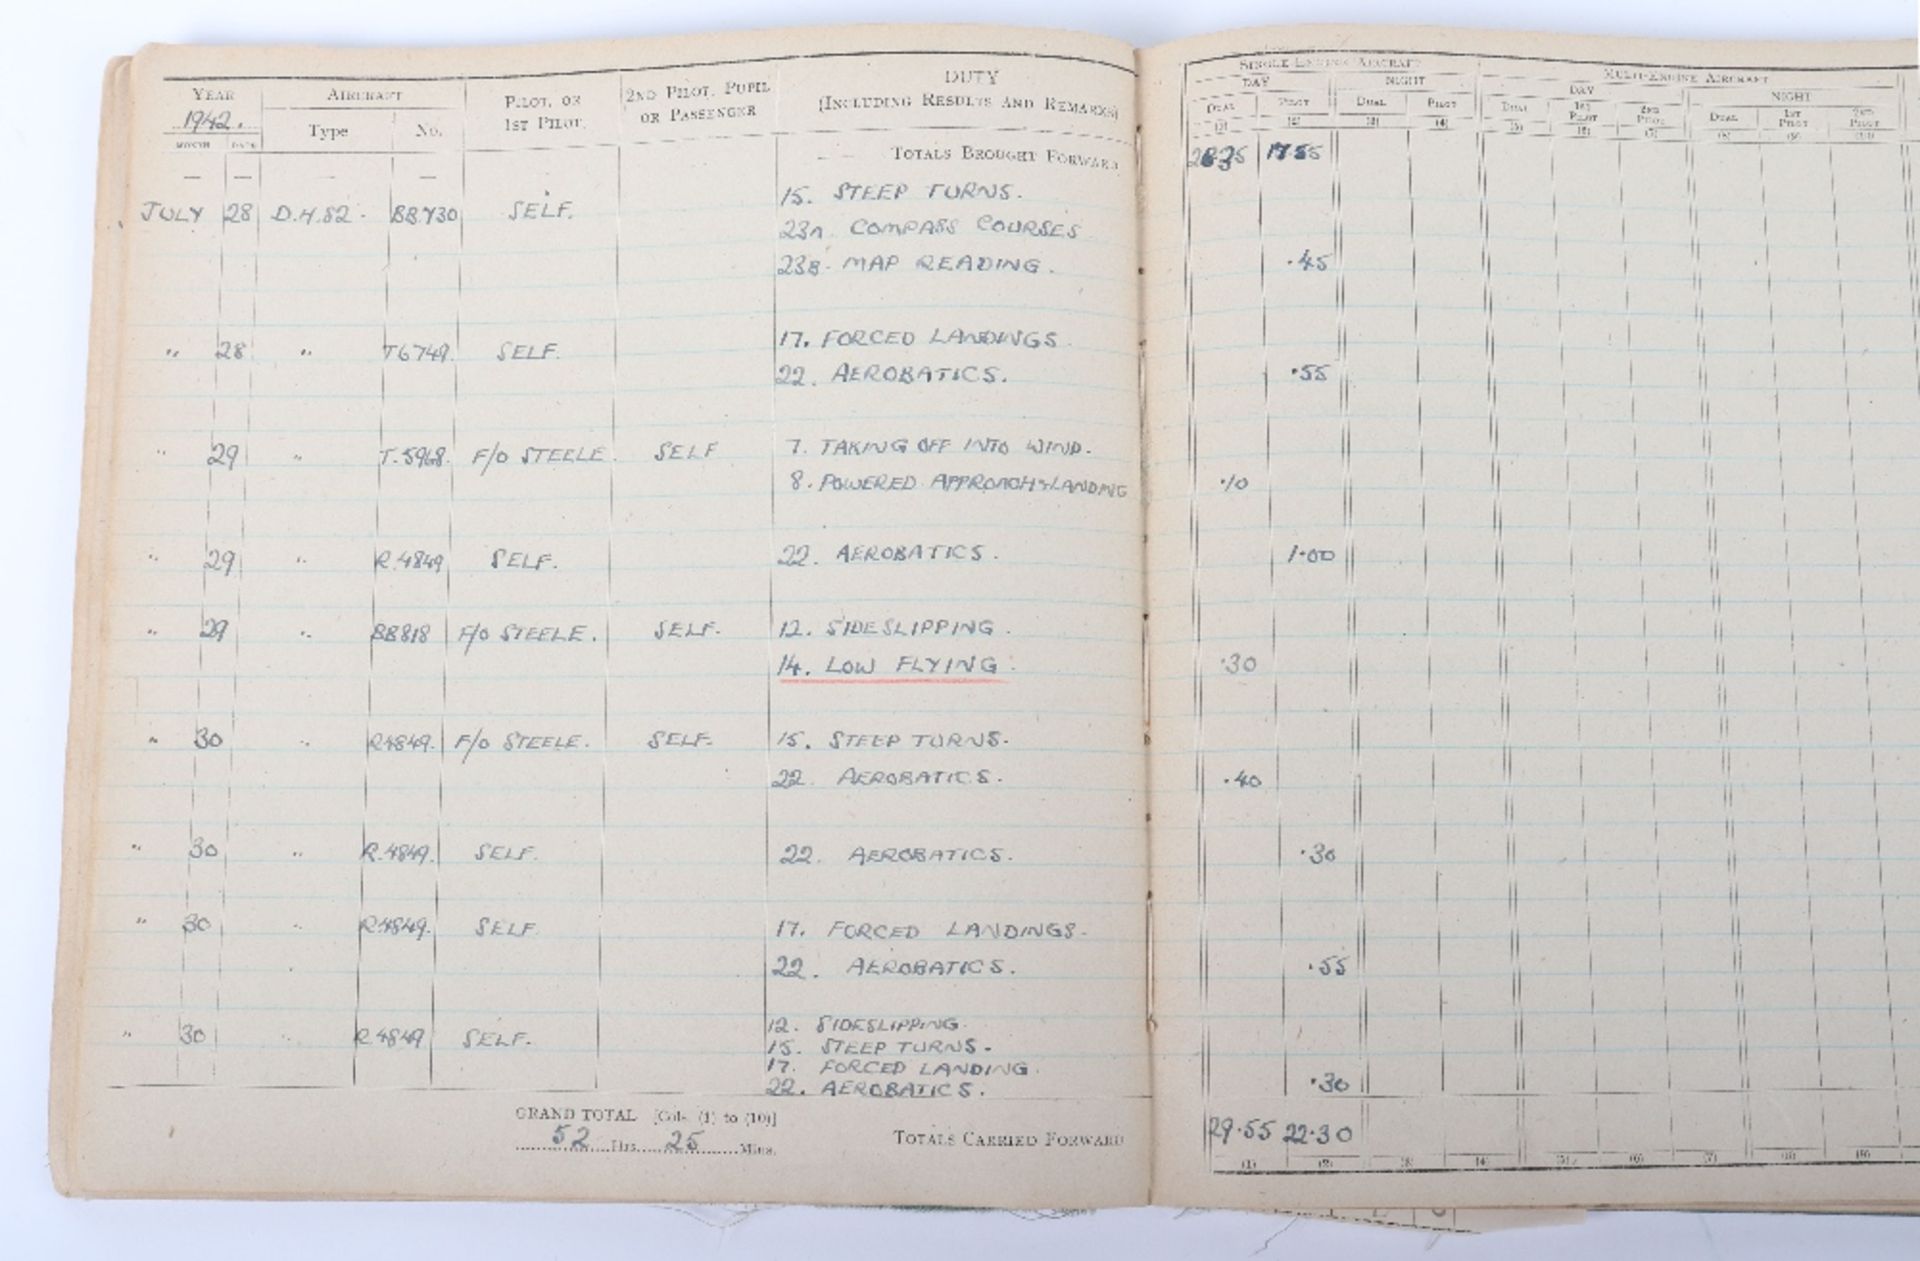 YEAR AIRCRAFT PILOT, OR 1ST PILOT 2ND PILOT, PUPIL OR PASSENGER DUTY (INCLUDING RESULTS AND REMARKS)
SINGLE-ENGINE AIRCRAFT MULTI-ENGINE AIRCRAFT
DAY NIGHT DAY NIGHT
1942. Type No.
MONTH DATE
DUAL PILOT DUAL PILOT DUAL 1ST PILOT 2ND PILOT DUAL 1ST PILOT 2ND PILOT
(1) (2) (3) (4) (5) (6) (7) (8) (9) (10)
— — — — — — TOTALS BROUGHT FORWARD
JULY 28 D.H.82. BB730 SELF. 15. STEEP TURNS.
23A COMPASS COURSES
23B. MAP READING. .45
" 28 " T6749. SELF. 17. FORCED LANDINGS
22. AEROBATICS. .55
" 29 " T.5968. F/O STEELE. SELF 7. TAKING OFF INTO WIND.
8. POWERED APPROACH & LANDING .10
" 29 " R.4849 SELF. 22. AEROBATICS. 1.00
" 29 " BB818 F/O STEELE. SELF. 12. SIDESLIPPING.
14. LOW FLYING. .30
" 30 " R4849. F/O STEELE. SELF. 15. STEEP TURNS.
22. AEROBATICS. .40
" 30 " R.4849. SELF. 22. AEROBATICS. .30
" 30 " R.4849. SELF. 17. FORCED LANDINGS.
22. AEROBATICS. .55
" 30 " R.4849 SELF. 12. SIDESLIPPING.
15. STEEP TURNS.
17. FORCED LANDING.
22. AEROBATICS. .30
GRAND TOTAL [Cols. (1) to (10)]
52 Hrs. 25 Mins. TOTALS CARRIED FORWARD 29.55 22.30
(1) (2) (3) (4) (5) (6) (7) (8) (9)